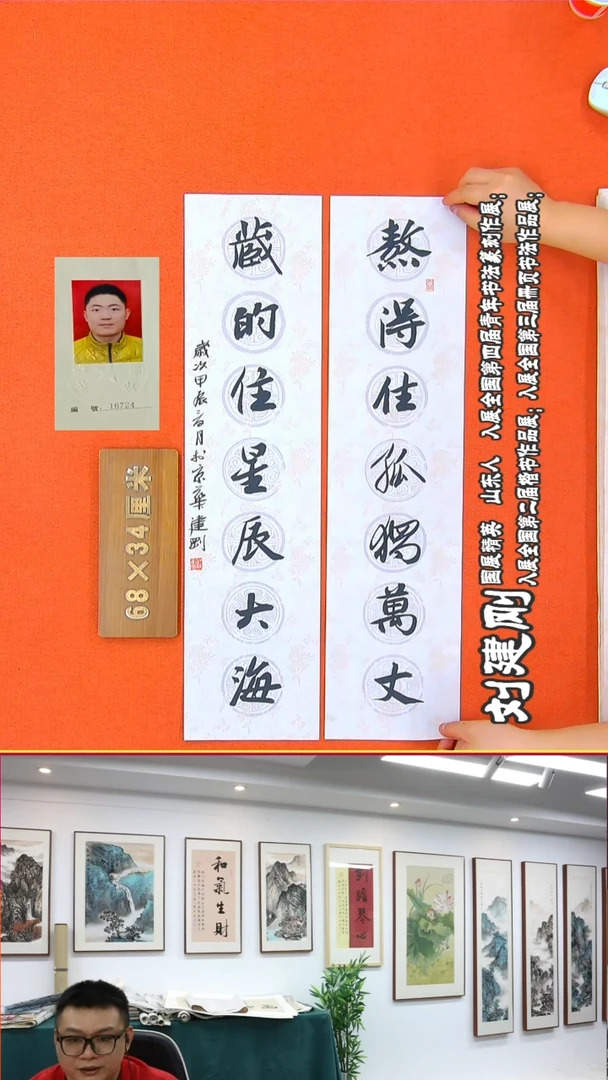 熬得住孤獨萬丈
藏的住星辰大海
歲次甲辰 月於京華建剛
編 號：16724
68×34厘米
刘建刚
国展精英 山东人 入展全国第四届青年书法篆刻作展；
入展全国第二届楷书作品展；入展全国第三届册页书法作品展；
和氣生財
琴心